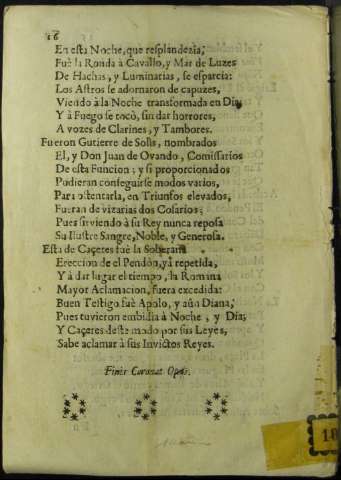 16
En esta Noche, que resplandezia,
Fuè la Ronda à Cavallo, y Mar de Luzes
De Hachas, y Luminarias, se esparcia:
Los Astros se adornaron de capuzes,
Viendo à la Noche transformada en Dia,
Y à Fuego se tocò, sin dar horrores,
A vozes de Clarines, y Tambores.
Fueron Gutierre de Solis, nombrados
El, y Don Juan de Ovando, Comissarios
De esta Funcion; y si proporcionados
Pudieran conseguirse modos varios,
Para ostentarla, en Triunfos elevados,
Fueran de vizarias dos Cosarios;
Pues sirviendo à su Rey nunca reposa
Su Ilustre Sangre, Noble, y Generosa.
Esta de Caçeres fuè la Soberana
Ereccion de el Pendon, yà repetida,
Y à dar lugar el tiempo, la Romana
Mayor Aclamacion, fuera excedida:
Buen Testigo fuè Apolo, y aũn Diana,
Pues tuvieron embidia à Noche, y Dia;
Y Caçeres deste modo por sus Leyes,
Sabe aclamar à sus Invictos Reyes.
Finis Coronat Opus.